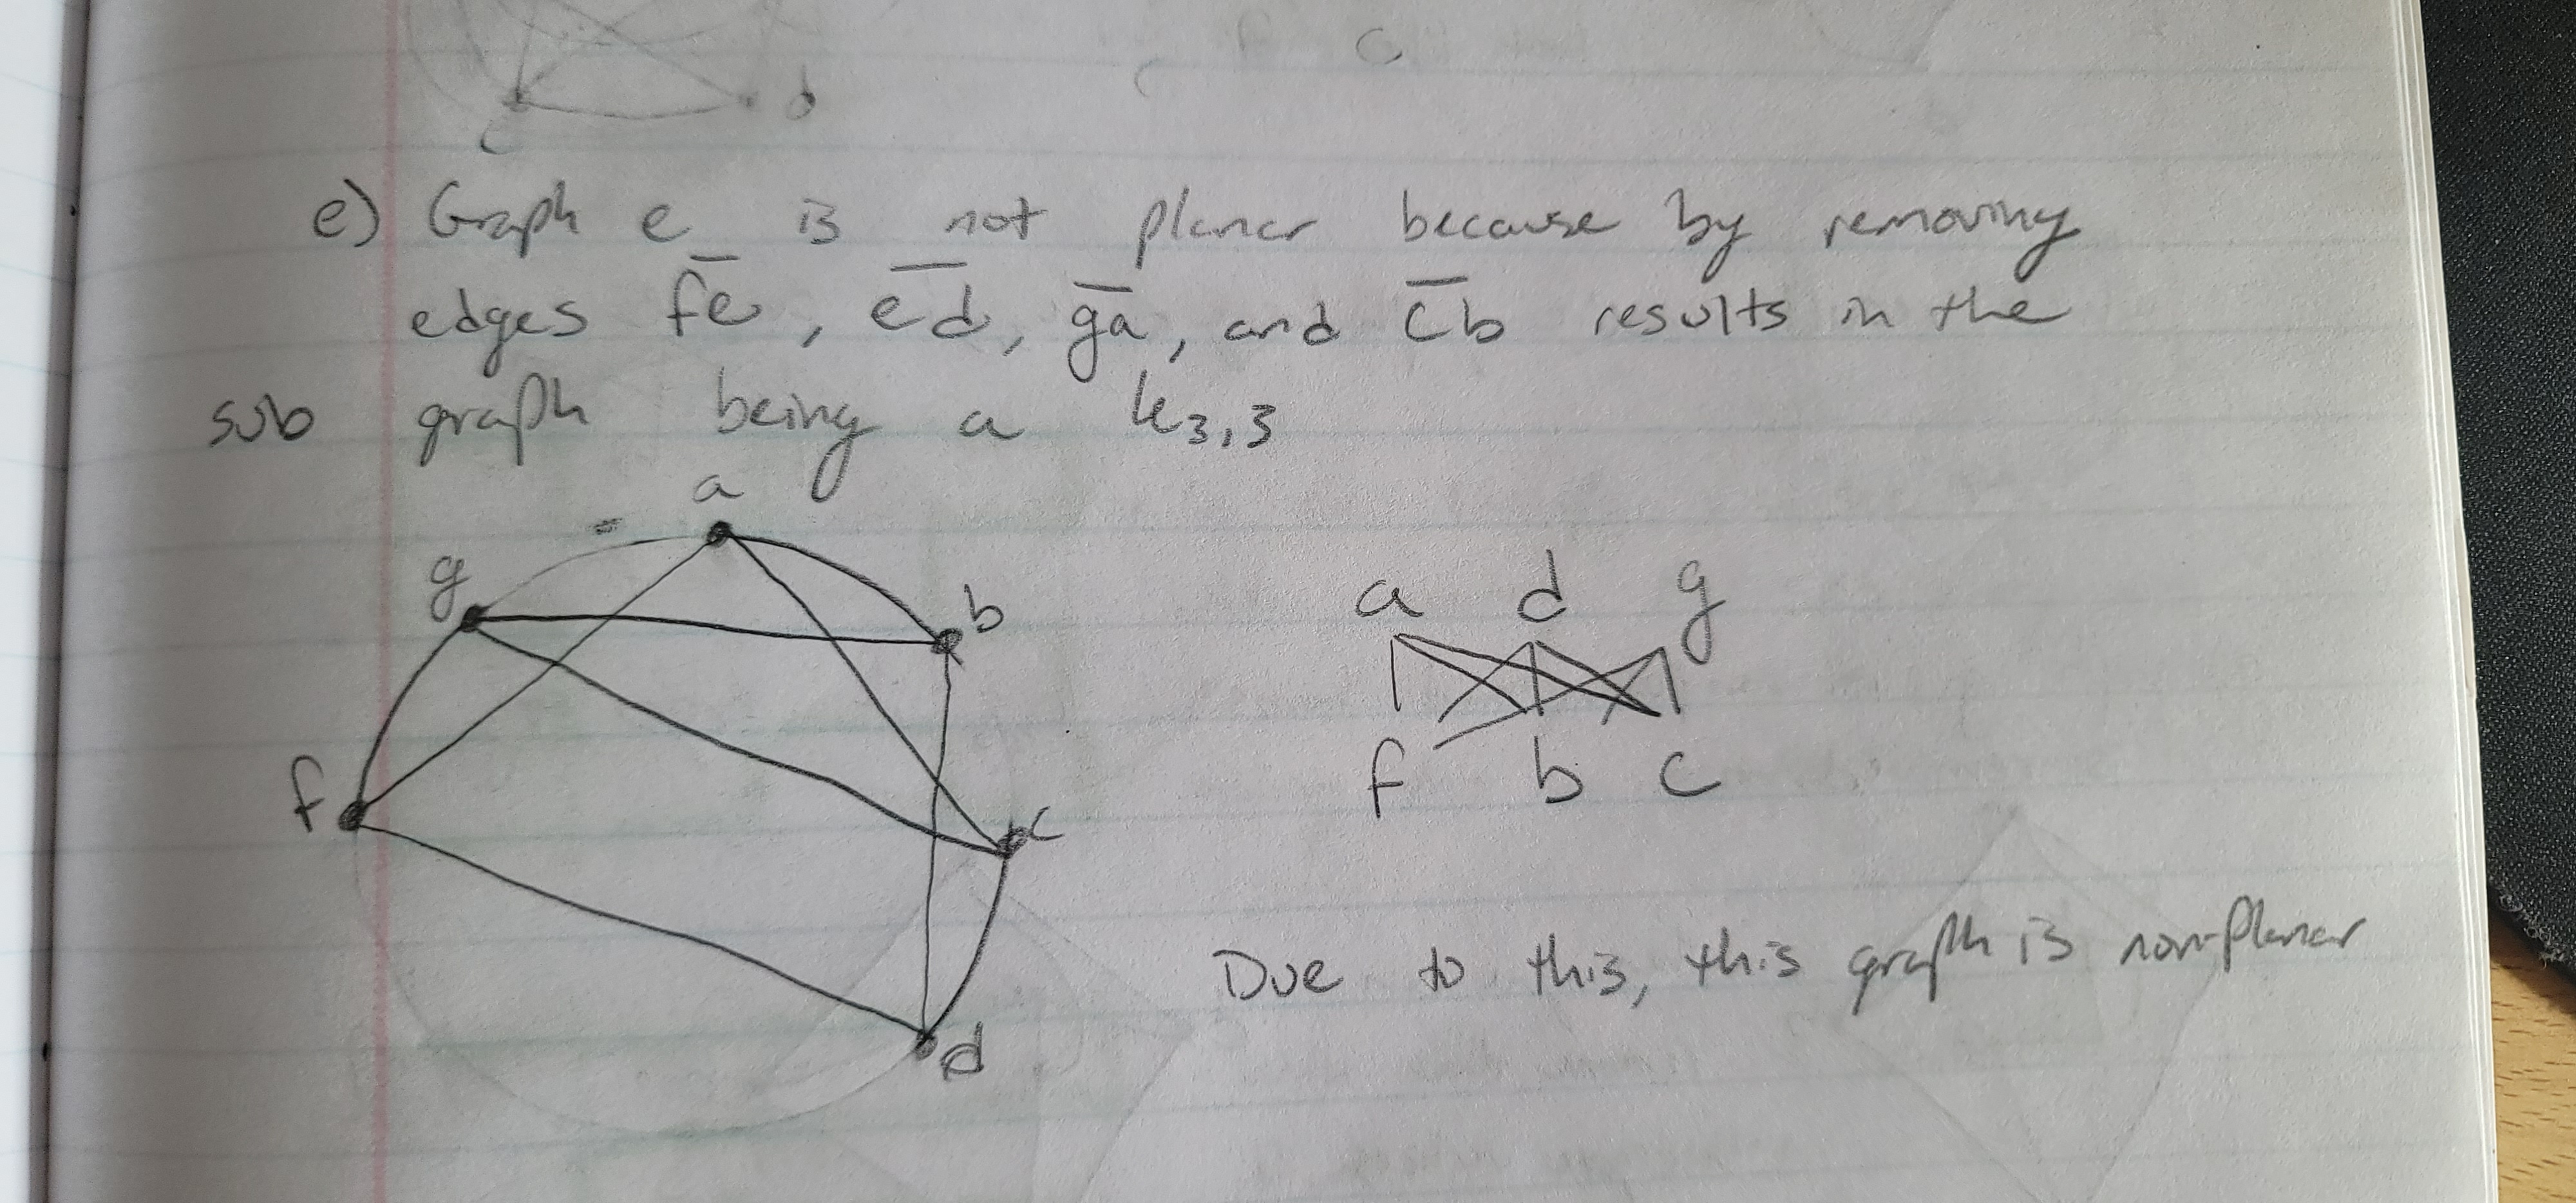 e) Graph e is not planer because by removing
edges fe, ed, ga, and cb results in the
sub graph being a K3,3
a
g
b
f
c
d
a d g
f b c
Due to this, this graph is non-planer